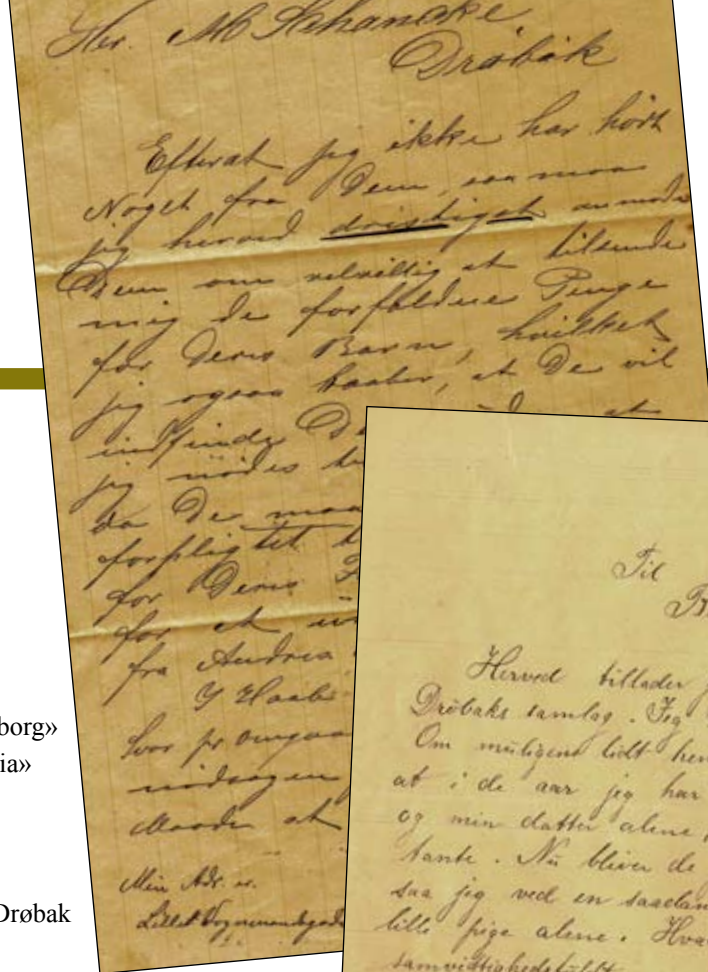 Hr. MB Schancke,
Drøbak
Efterat jeg ikke har hört
Noget fra Dem, saa maa
jeg herved dristigst anmode
Dem om velvillig at tilsende
mig de forfaldne Penge
for Deres Barn, hvilket
jeg ogsaa haaber, at De vil
indfinde
jeg nödes
da De maa
forpligtet
for Deres
for at
fra Andrea
I Haab
Svar pr omgaa
nödsagen
Maade at
Min Adr. er.
Lille Vognmandsgade
Til
Herved tillader
Dröbaks samlag. Jeg
Om muligens lidt hen
at i de aar jeg har
og min datter alene
tante. Nu bliver de
saa jeg ved en saadan
lille pige alene. Hva
samvittighedsfuldt
borg»
ia»
Drøbak